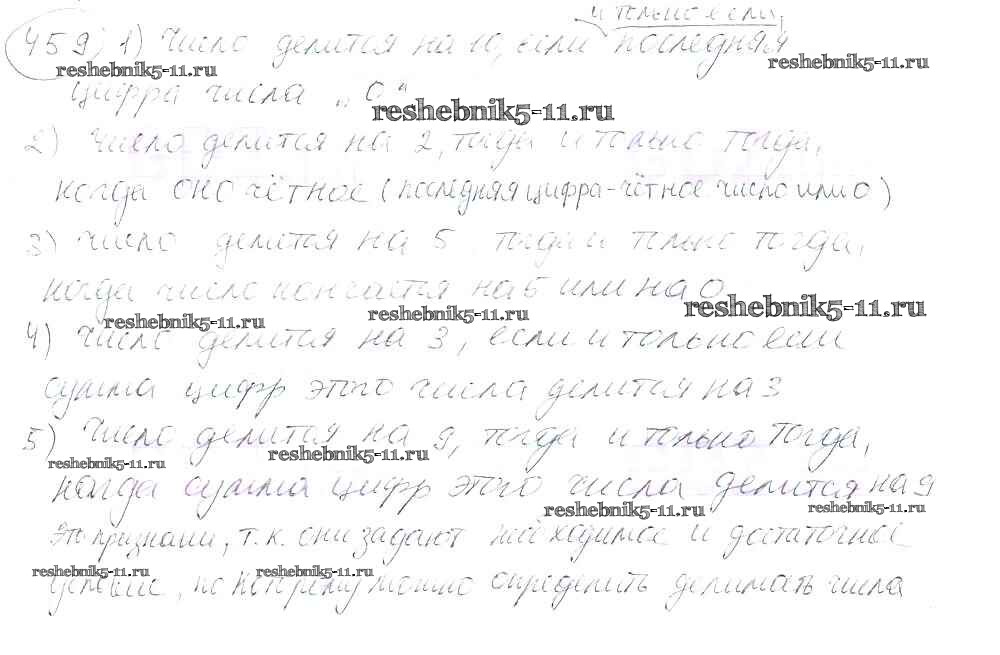 и только если,
459) 1) Число делится на 10, если последняя
reshebnik5-11.ru reshebnik5-11.ru
цифра числа „0“
reshebnik5-11.ru
2) Число делится на 2, тогда и только тогда,
когда оно чётное (последняя цифра - чётное число или 0)
3) Число делится на 5 тогда и только тогда,
когда число кончается на 5 или на 0
reshebnik5-11.ru reshebnik5-11.ru reshebnik5-11.ru
4) Число делится на 3, если и только если
сумма цифр этого числа делится на 3
5) Число делится на 9, тогда и только тогда,
reshebnik5-11.ru reshebnik5-11.ru
когда сумма цифр этого числа делится на 9
reshebnik5-11.ru reshebnik5-11.ru
Это признаки, т.к. они задают необходимое и достаточное
reshebnik5-11.ru reshebnik5-11.ru
условие, по которому можно определить делимость числа